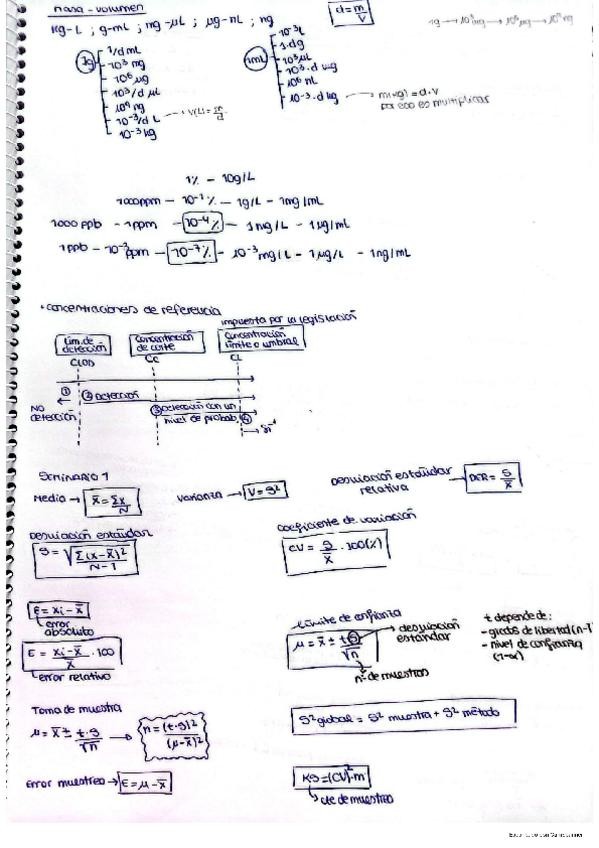 Masa - volumen
Kg-L ; g-mL ; mg-µL ; µg-nL ; ng
d = m/V
1g → 10³mg → 10⁶µg → 10⁹ng
1g
1/d mL
10³ mg
10⁶ µg
10³/d µL
10⁹ ng
10⁻³/d L → V(L) = m/d
10⁻³ kg
1mL
10⁻³L
1·dg
10³µL
10³·d mg
10⁶ nL
10⁻³·d kg → m(kg) = d·V
por eso es multiplicar
1% - 10g/L
1000ppm - 10⁻¹% - 1g/L - 1mg/mL
1000 ppb - 1ppm - 10⁻⁴% - 1mg/L - 1µg/mL
1ppb - 10⁻³ppm - 10⁻⁷% - 10⁻³mg/L - 1µg/L - 1ng/mL
• Concentraciones de referencia
impuesta por la legislación
Lím. de detección
Concentración de corte
Concentración límite o umbral
CLOD
CC
CL
① NO detección
② Detección
③ Detección con un nivel de probab.
④
Seminario 1
Media → x̄ = Σx/N
Varianza → V = s²
Desviación estándar relativa → DER = s/x̄
Desviación estándar
S = √(Σ(x-x̄)²/N-1)
Coeficiente de variación
CV = s/x̄ · 100(%)
E = xi - x̄
error absoluto
E = xi - x̄/x̄ · 100
error relativo
Límite de confianza
µ = x̄ ± t·s/√n
desviación estándar
nº de muestras
t depende de:
- grados de libertad (n-1)
- nivel de confianza (1-α)
Toma de muestra
µ = x̄ ± t·s/√n → n = (t·s)²/(µ-x̄)²
S² global = S² muestra + S² método
Error muestreo → E = µ - x̄
Ks = (CV)²·m
cte de muestreo